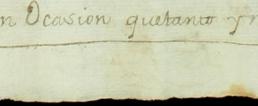 n Ocasion quetanto yn